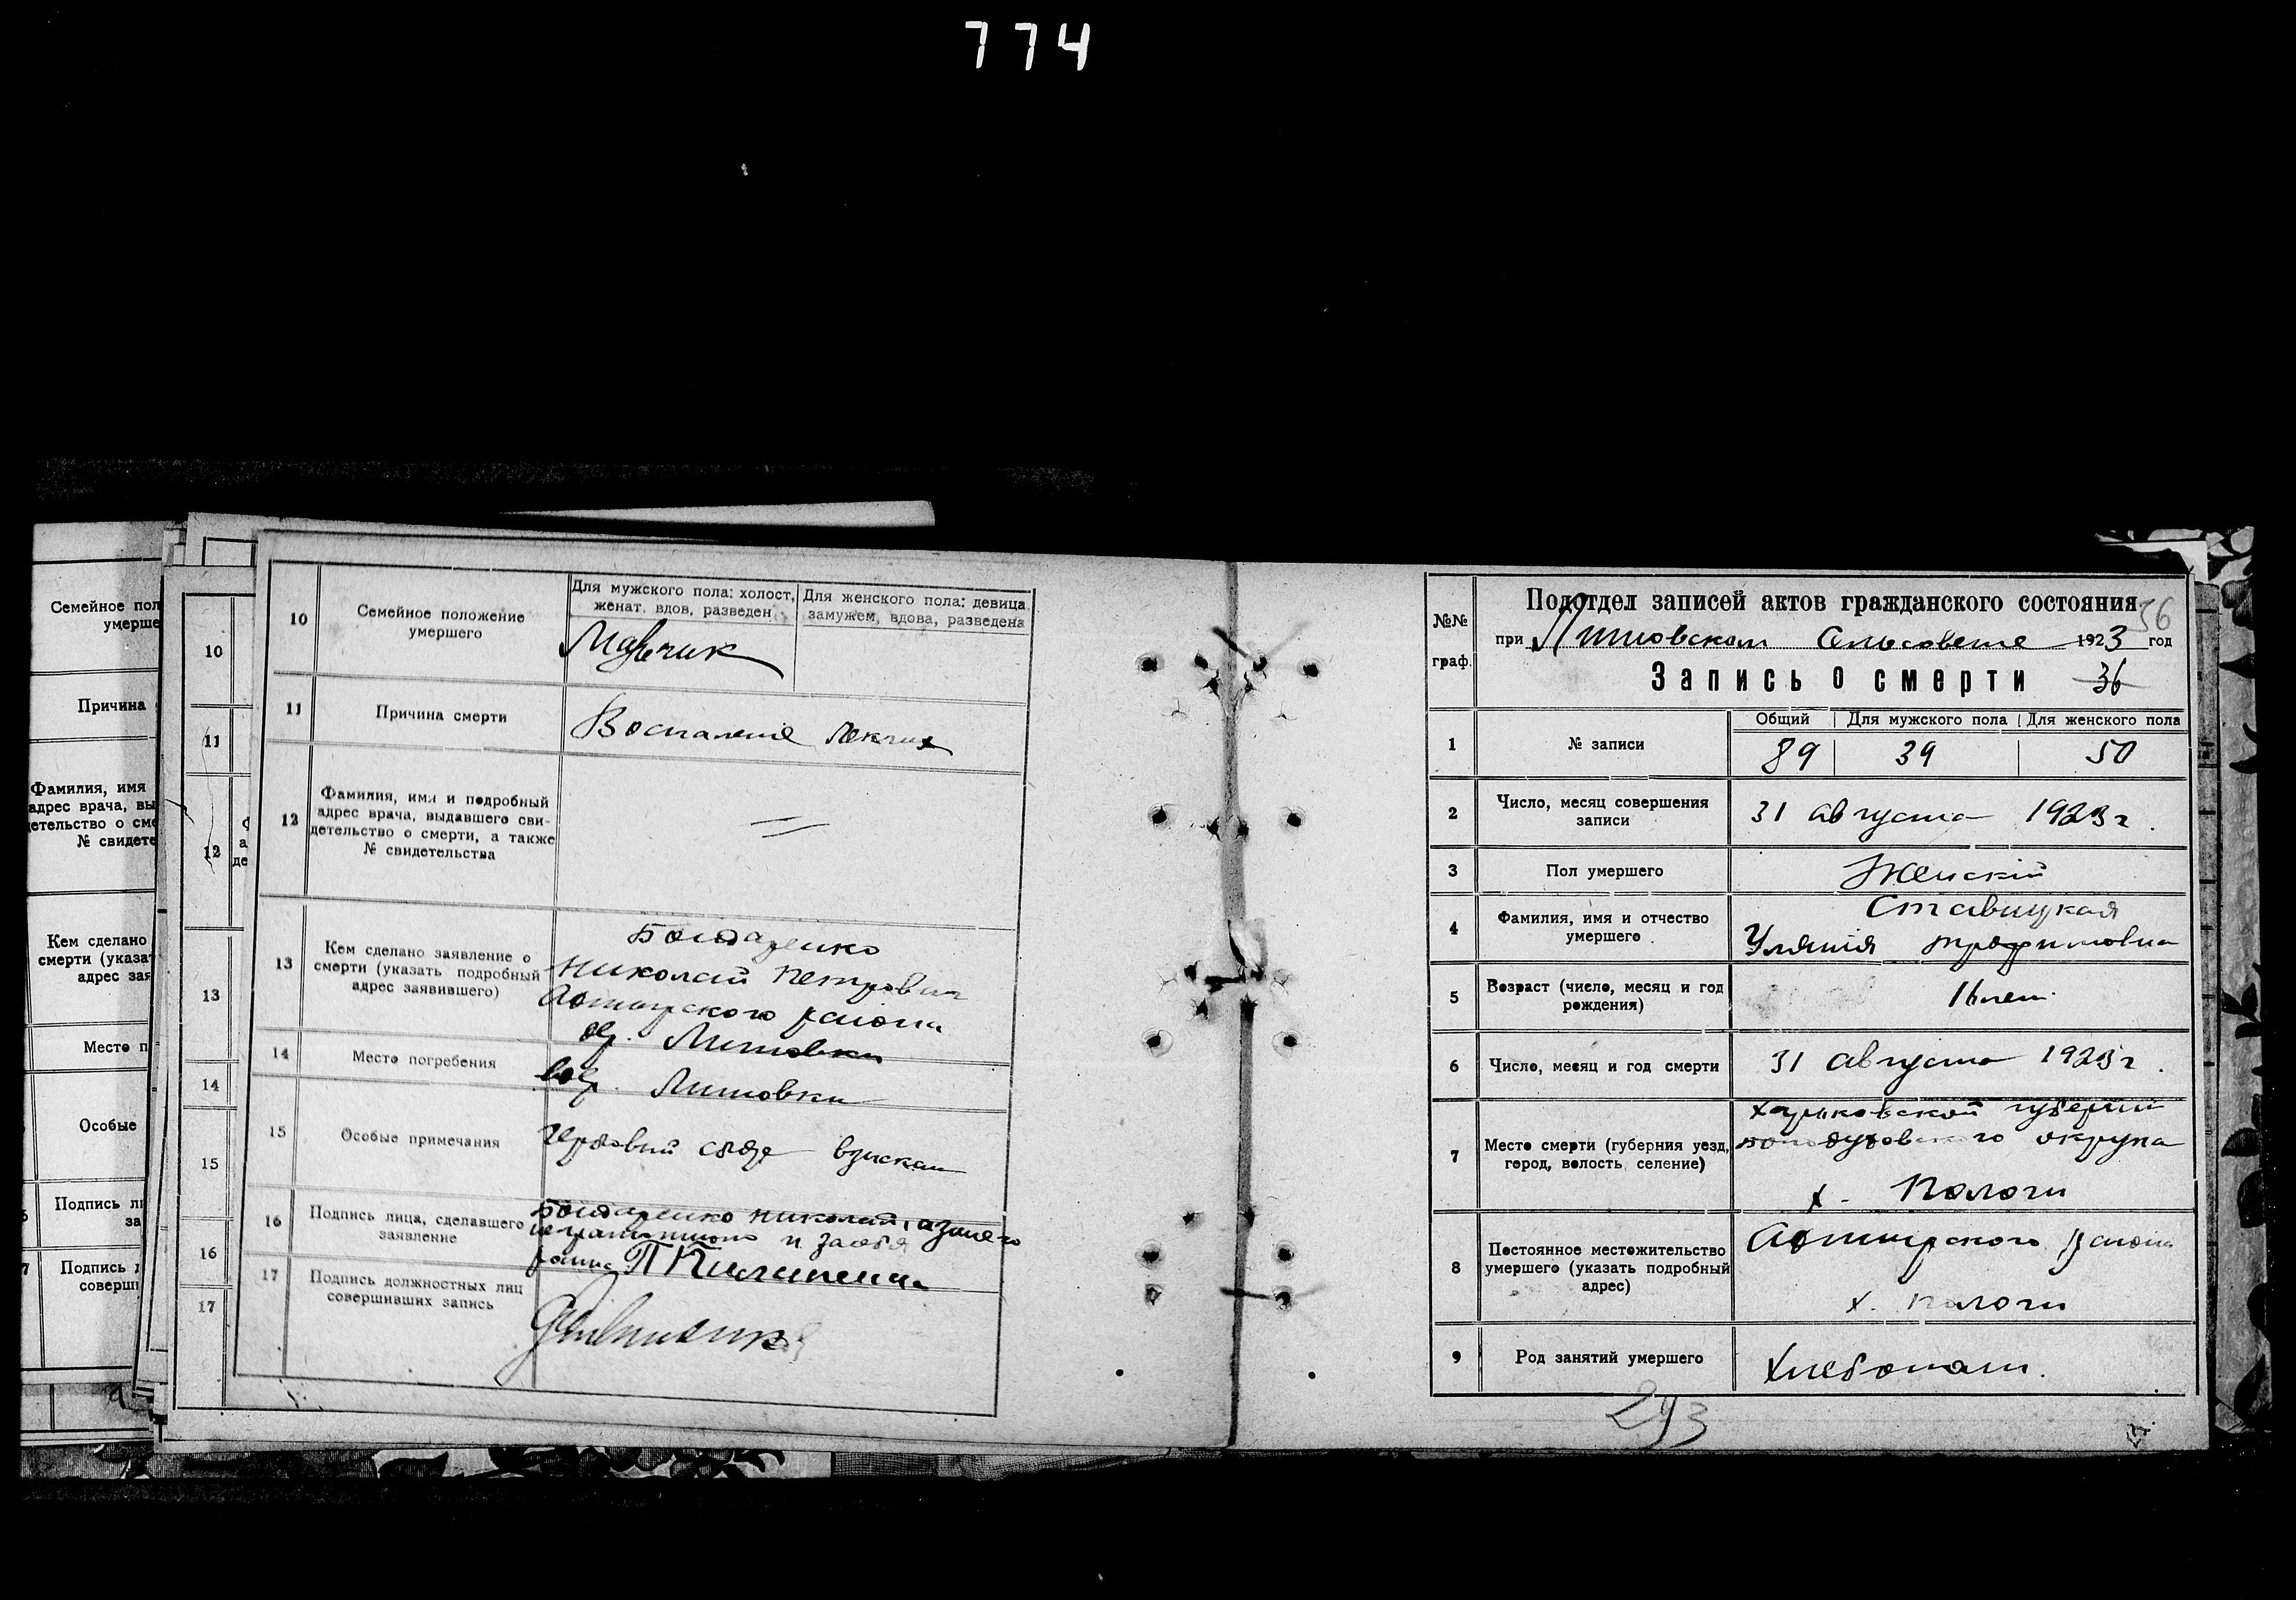 774
Семейное пол
умерше
Причина
Фамилия, имя
адрес врача, вы
детельство о сме
№ свидете
Кем сделано
смерти (указат
адрес зая
Место п
Особые
Подпись ли
за
Подпись д
соверши
10
11
12
13
14
15
16
17
10
Семейное положение
умершего
Для мужского пола: холост,
женат, вдов, разведен
Для женского пола: девица,
замужем, вдова, разведена
Мальчик
11
Причина смерти
Воспаление легких
12
Фамилия, имя и подробный
адрес врача, выдавшего сви-
детельство о смерти, а также
№ свидетельства
13
Кем сделано заявление о
смерти (указать подробный
адрес заявившего)
Бондаренко
Николай Петрович
Ахтырского района
Литовки
14
Место погребения
Литовки
15
Особые примечания
герговый сбор взыскан
16
Подпись лица, сделавшего
заявление
Бондаренко Николай, а за него
неграмотного
17
Подпись должностных лиц
совершивших запись
№№
граф.
Подотдел записей актов гражданского состояния
36
при Литовском Сельсовете 1923 год
Запись о смерти 36
1
№ записи
Общий
Для мужского пола
Для женского пола
89
39
50
2
Число, месяц совершения
записи
31 августа 1923 г.
3
Пол умершего
Женскій
4
Фамилия, имя и отчество
умершего
Ставицкая
Улянія Трофимовна
5
Возраст (число, месяц и год
рождения)
16 лет
6
Число, месяц и год смерти
31 августа 1923 г.
7
Место смерти (губерния уезд,
город, волость, селение)
Харьковской губерніи
Богодуховского округа
х. Пологи
8
Постоянное местожительство
умершего (указать подробный
адрес)
Ахтырского района
х. Пологи
9
Род занятий умершего
Хлебопаш.
293